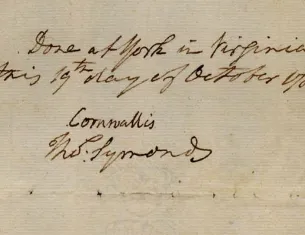 Done at York in Virginia
this 19th day of October 17
Cornwallis
Thos. Symonds